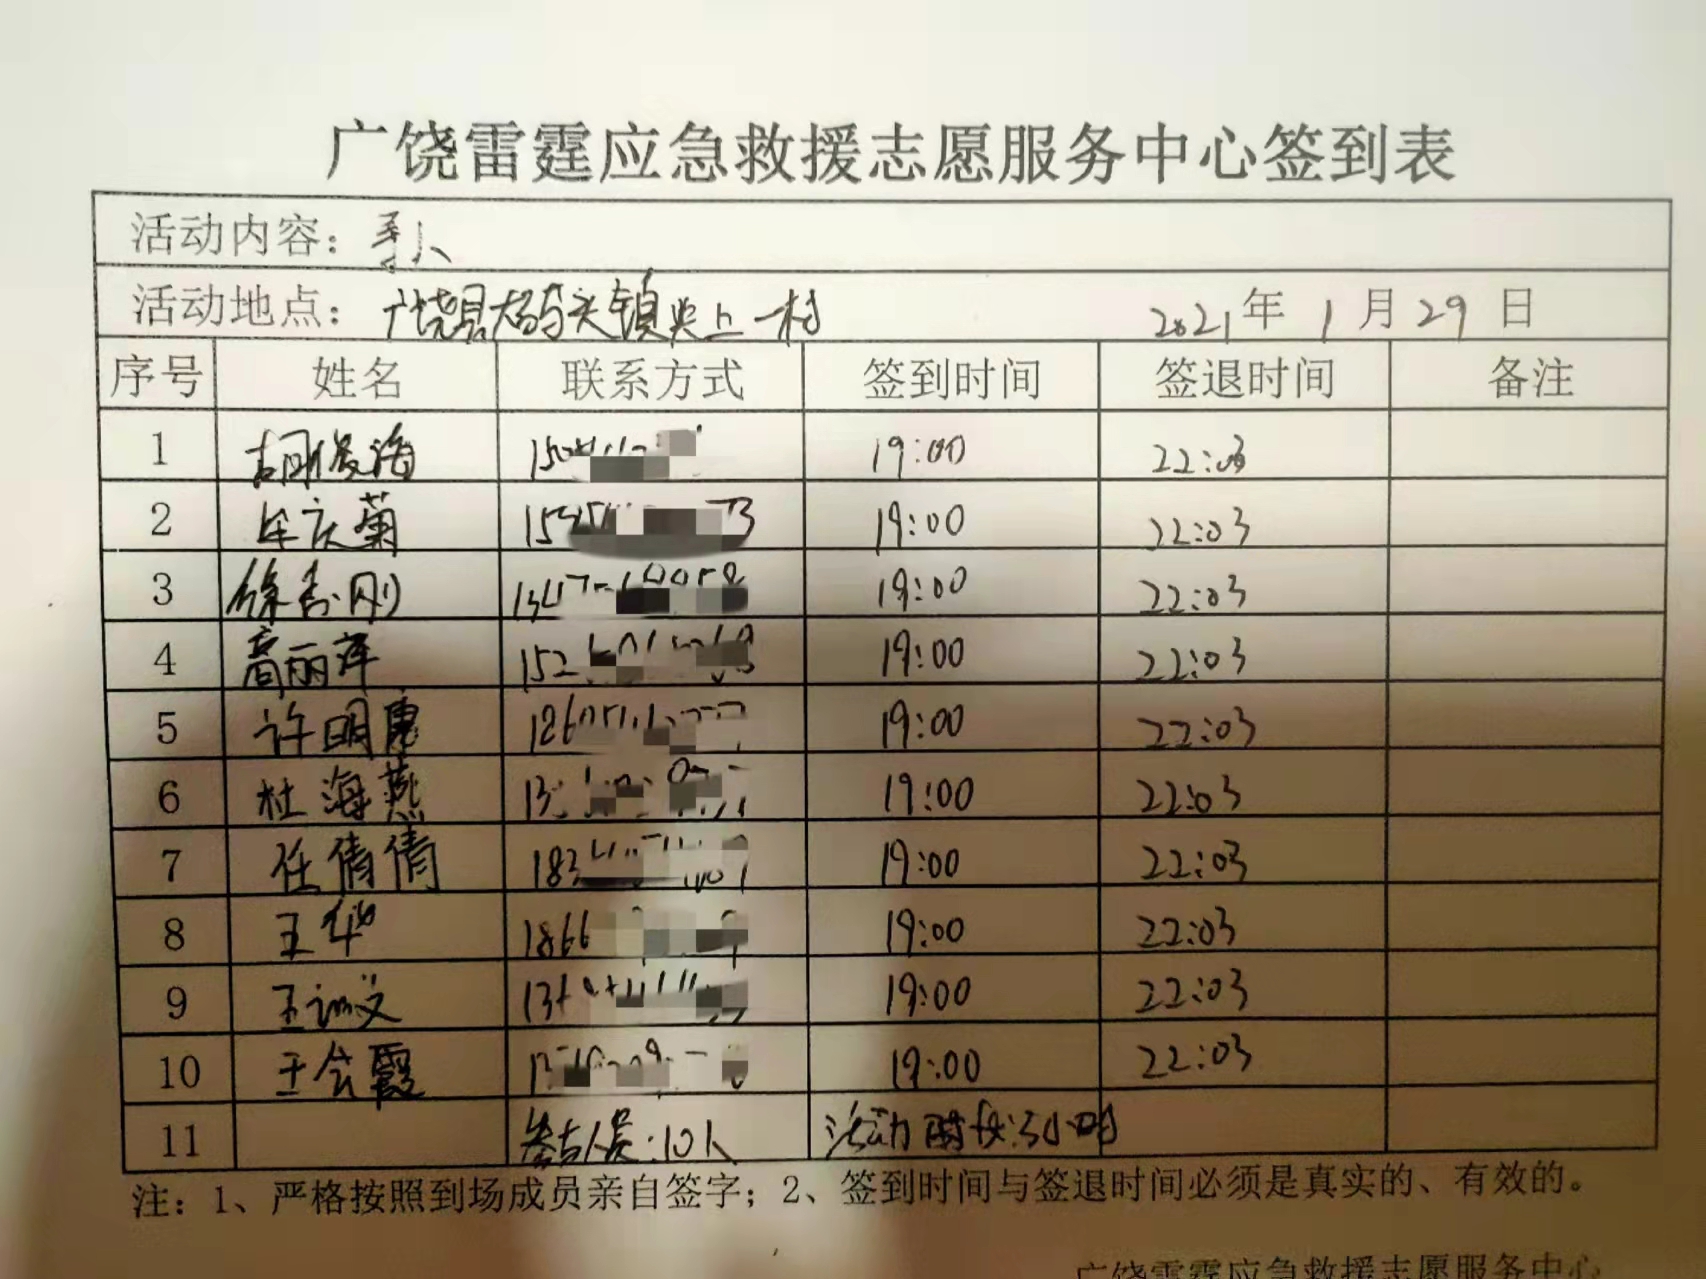 广饶雷霆应急救援志愿服务中心签到表
活动内容：寻人
活动地点：广饶县大码头镇央上一村 2021年1月29日
序号 姓名 联系方式 签到时间 签退时间 备注
1 胡俊海 150 19:00 22:03
2 牟庆菊 15 73 19:00 22:03
3 徐 刚 1347 19:00 22:03
4 高丽萍 152 19:00 22:03
5 许明康 186 19:00 22:03
6 杜海燕 13 19:00 22:03
7 任倩倩 183 19:00 22:03
8 王华 1866 19:00 22:03
9 王 义 13 19:00 22:03
10 王会霞 13 19:00 22:03
11 参与人员:10人 活动时长:3小时
注：1、严格按照到场成员亲自签字；2、签到时间与签退时间必须是真实的、有效的。
广饶雷霆应急救援志愿服务中心